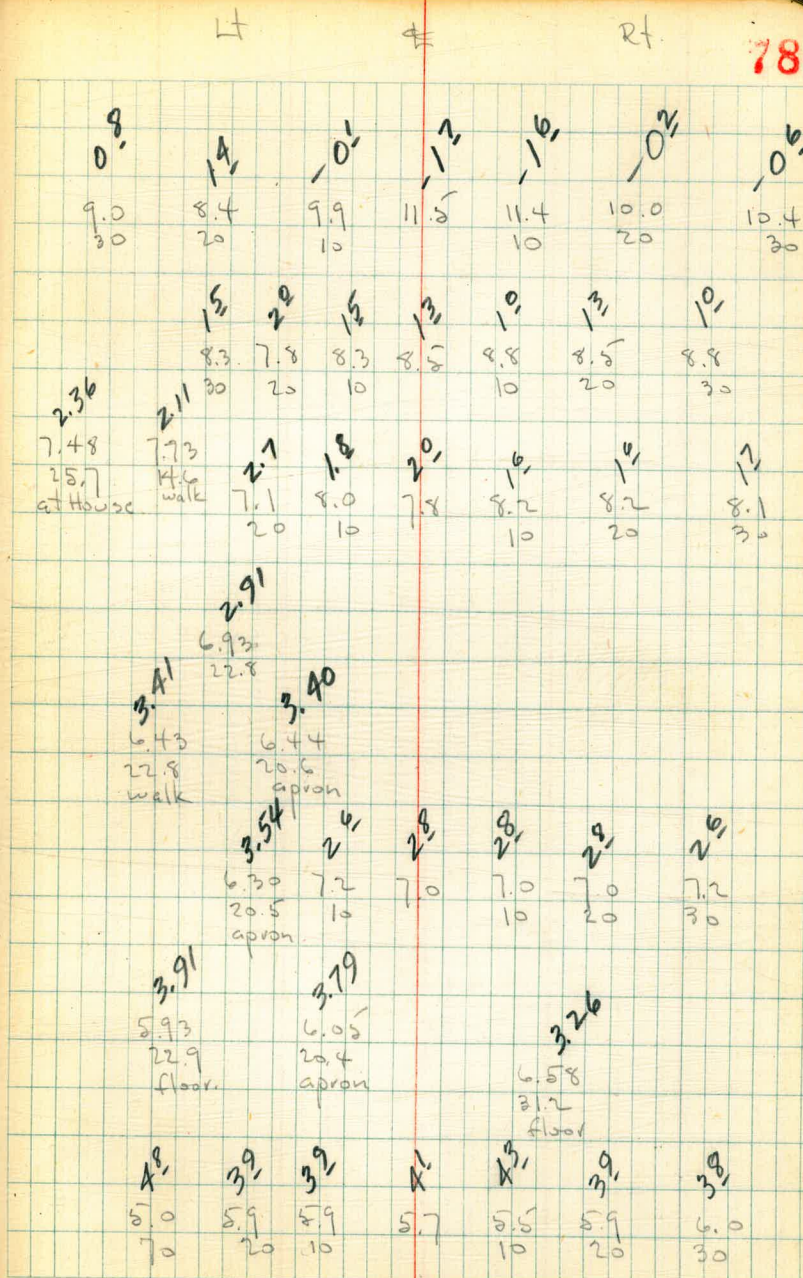 Lt ℄ Rt.
78
0.8 1.4 -0.1 -1.7 -1.6 -0.2 -0.6
9.0 8.4 9.9 11.5 11.4 10.0 10.4
30 20 10 10 20 30
1.5 2.0 1.5 1.3 1.0 1.3 1.0
8.3 7.8 8.3 8.5 8.8 8.5 8.8
30 20 10 10 20 30
2.36 2.11
7.48 7.73
25.7 14.6
at House walk
2.7 1.8 2.0 1.6 1.6 1.7
7.1 8.0 7.8 8.2 8.2 8.1
20 10 10 20 30
2.91
6.93
22.8
3.41 3.40
6.43 6.44
22.8 20.6
walk apron
3.54 2.6 2.8 2.8 2.8 2.6
6.30 7.2 7.0 7.0 7.0 7.2
20.5 10 10 20 30
apron
3.91 3.79
5.93 6.05
22.9 20.4
floor. apron
3.26
6.58
31.2
floor
4.8 3.9 3.9 4.1 4.3 3.9 3.8
5.0 5.9 5.9 5.7 5.5 5.9 6.0
30 20 10 10 20 30